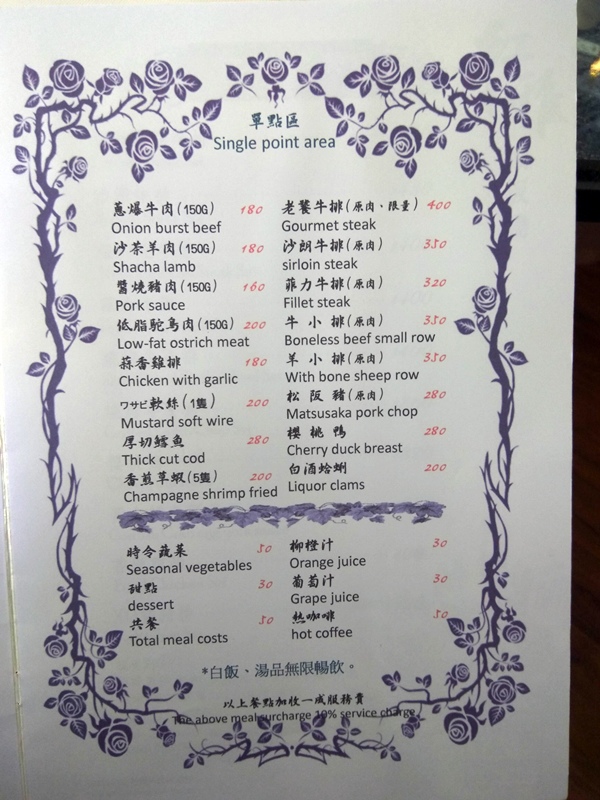 單點區
Single point area
蔥爆牛肉(150G) 180
Onion burst beef
沙茶羊肉(150G) 180
Shacha lamb
醬燒豬肉(150G) 160
Pork sauce
低脂駝鳥肉(150G) 200
Low-fat ostrich meat
蒜香雞排 180
Chicken with garlic
ワサビ軟絲(1隻) 200
Mustard soft wire
厚切鱈魚 280
Thick cut cod
香煎草蝦(5隻) 200
Champagne shrimp fried
老饕牛排(原肉、限量) 400
Gourmet steak
沙朗牛排(原肉) 350
sirloin steak
菲力牛排(原肉) 320
Fillet steak
牛小排(原肉) 350
Boneless beef small row
羊小排(原肉) 350
With bone sheep row
松阪豬(原肉) 280
Matsusaka pork chop
櫻桃鴨 280
Cherry duck breast
白酒蛤蜊 200
Liquor clams
時令蔬菜 50
Seasonal vegetables
甜點 30
dessert
共餐 50
Total meal costs
柳橙汁 30
Orange juice
葡萄汁 30
Grape juice
熱咖啡 50
hot coffee
*白飯、湯品無限暢飲。
以上餐點加收一成服務費
The above meal surcharge 10% service charge